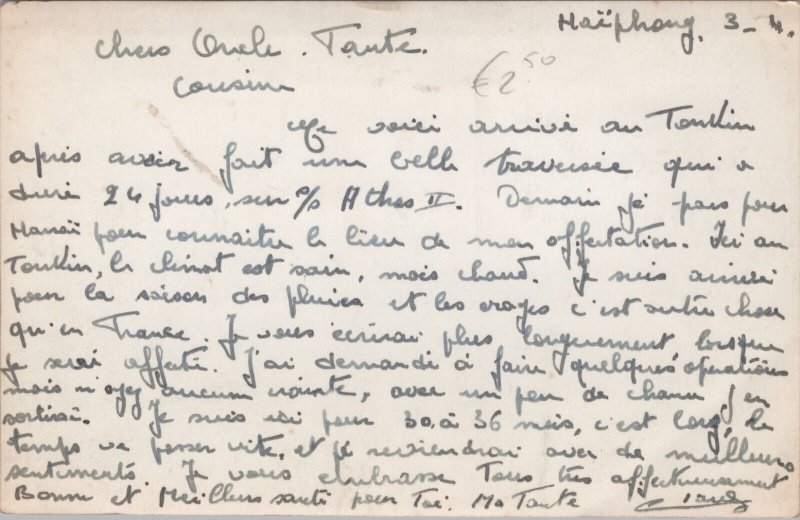 Haïphong, 3-4.
Chers Oncle. Tante.
€2 50
Cousine
Me voici arrivé au Tonkin
après avoir fait une belle traversée qui a
duré 24 jours, sur s/s Athos II. Demain je pars pour
Hanoï pour connaitre le lieu de mon affectation. Ici au
Tonkin, le climat est sain, mais chaud. Je suis arrivé
pour la saison des pluies et les orages c'est autre chose
qu'en France. Je vous écrirai plus longuement lorsque
je serai affecté. J'ai demandé à faire quelques opérations
mais n'ayez aucune crainte, avec un peu de chance j'en
sortirai. Je suis ici pour 30 à 36 mois, c'est long, le
temps va passer vite, et je reviendrai avec de meilleurs
sentiments. Je vous embrasse Tous très affectueusement
Bonne et Meilleure santé pour Toi. Ma Tante